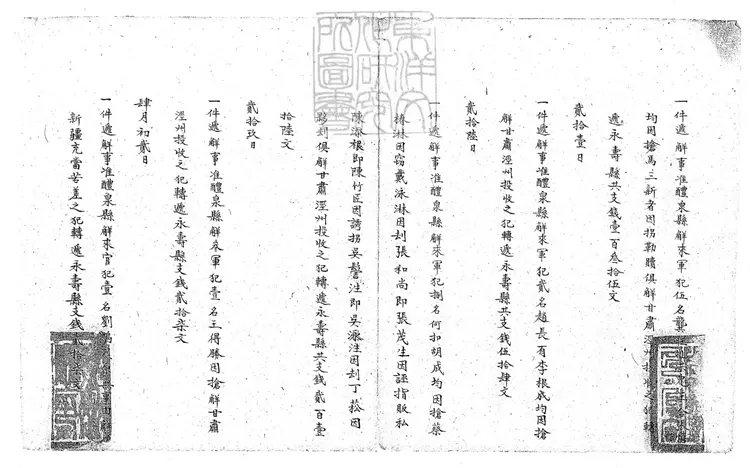 一件遞解事准醴泉縣解來軍犯伍名龔
均因搶馬三新者因拐勒贖俱解甘肅涇州投收之犯轉
遞永壽縣共支錢壹百叁拾伍文
貳拾壹日
一件遞解事准醴泉縣解來軍犯貳名趙長有李根成均因搶
解甘肅涇州投收之犯轉遞永壽縣共支錢伍拾肆文
貳拾陸日
一件遞解事准醴泉縣解來軍犯捌名何扣胡成均因搶蔡
椿淋因竊戴泳淋因刦張和尚即張茂生因誣指販私
陳添根即陳竹臣因誘拐吳髻注即吳源注因刦丁菘因
夥刦俱解甘肅涇州投收之犯轉遞永壽縣共支錢貳百壹
拾陸文
貳拾玖日
一件遞解事准醴泉縣解來軍犯壹名王得勝因搶解甘肅
涇州投收之犯轉遞永壽縣支錢貳拾柒文
肆月初貳日
一件遞解事准醴泉縣解來官犯壹名劉
新疆充當苦差之犯轉遞永壽縣支錢貳拾柒文
東洋文
化研究
所圖書